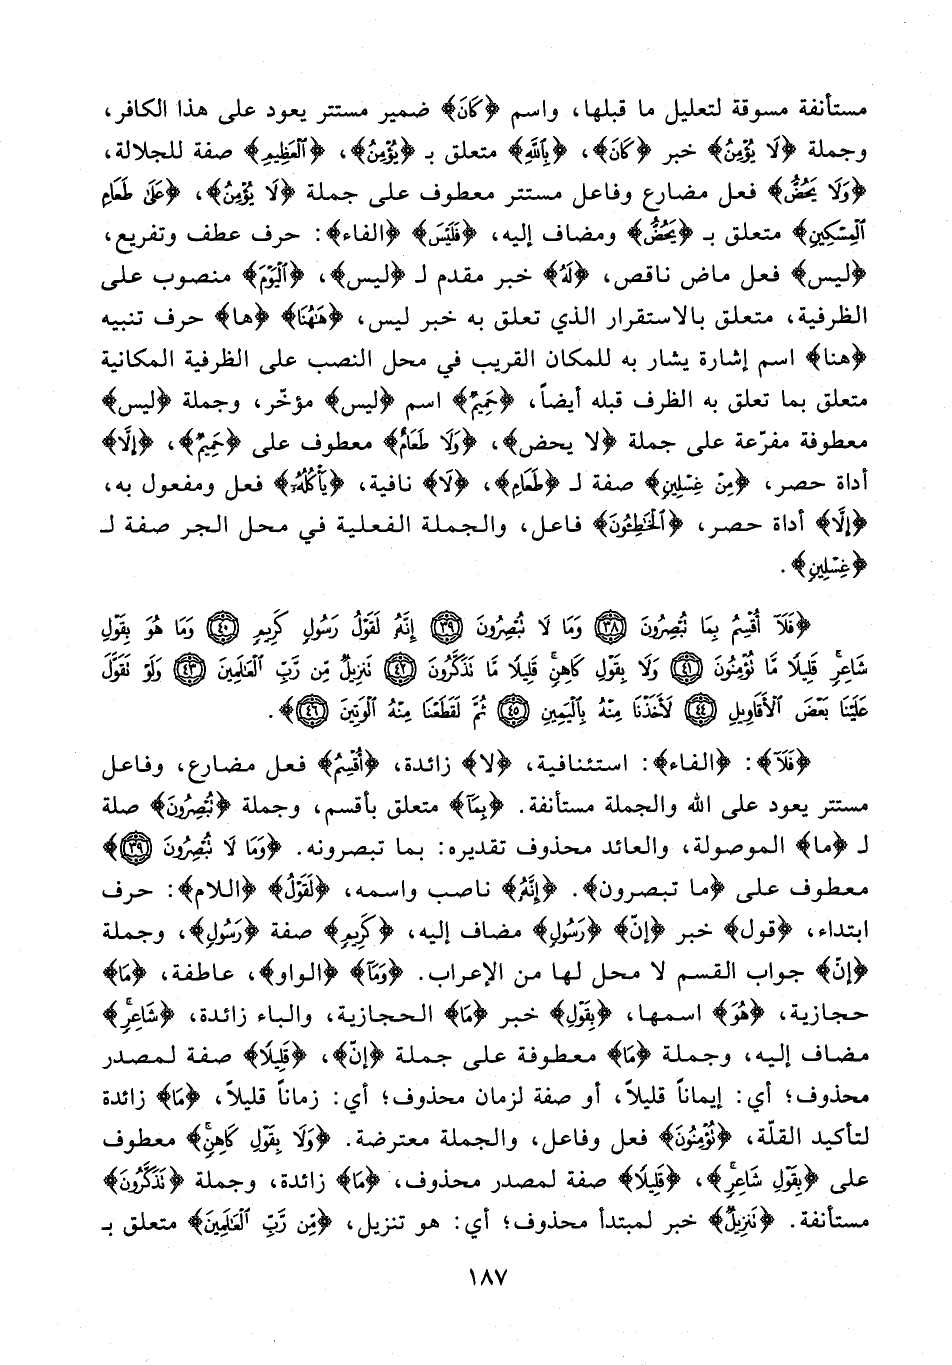 مستأنفة مسوقة لتعليل ما قبلها، واسم ﴿كَانَ﴾ ضمير مستتر يعود على هذا الكافر،
وجملة ﴿لَا يُؤْمِنُ﴾ خبر ﴿كَانَ﴾، ﴿بِاللَّهِ﴾ متعلق بـ ﴿يُؤْمِنُ﴾، ﴿الْعَظِيمِ﴾ صفة للجلالة،
﴿وَلَا يَحُضُّ﴾ فعل مضارع وفاعل مستتر معطوف على جملة ﴿لَا يُؤْمِنُ﴾، ﴿عَلَىٰ طَعَامِ
الْمِسْكِينِ﴾ متعلق بـ ﴿يَحُضُّ﴾ ومضاف إليه، ﴿فَلَيْسَ﴾ ﴿الفاء﴾: حرف عطف وتفريع،
﴿ليس﴾ فعل ماض ناقص، ﴿لَهُ﴾ خبر مقدم لـ ﴿ليس﴾، ﴿الْيَوْمَ﴾ منصوب على
الظرفية، متعلق بالاستقرار الذي تعلق به خبر ليس، ﴿هَٰهُنَا﴾ ﴿ها﴾ حرف تنبيه
﴿هنا﴾ اسم إشارة يشار به للمكان القريب في محل النصب على الظرفية المكانية
متعلق بما تعلق به الظرف قبله أيضاً، ﴿حَمِيمٌ﴾ اسم ﴿ليس﴾ مؤخّر، وجملة ﴿ليس﴾
معطوفة مفرّعة على جملة ﴿لا يحض﴾، ﴿وَلَا طَعَامٌ﴾ معطوف على ﴿حَمِيمٌ﴾، ﴿إِلَّا﴾
أداة حصر، ﴿مِنْ غِسْلِينٍ﴾ صفة لـ ﴿طَعَامٍ﴾، ﴿لَا﴾ نافية، ﴿يَأْكُلُهُۥ﴾ فعل ومفعول به،
﴿إِلَّا﴾ أداة حصر، ﴿الْخَاطِئُونَ﴾ فاعل، والجملة الفعلية في محل الجر صفة لـ
﴿غِسْلِينٍ﴾.
﴿فَلَآ أُقْسِمُ بِمَا تُبْصِرُونَ ٣٨ وَمَا لَا تُبْصِرُونَ ٣٩ إِنَّهُۥ لَقَوْلُ رَسُولٍ كَرِيمٍ ٤٠ وَمَا هُوَ بِقَوْلِ
شَاعِرٍۚ قَلِيلًا مَّا تُؤْمِنُونَ ٤١ وَلَا بِقَوْلِ كَاهِنٍۚ قَلِيلًا مَّا تَذَكَّرُونَ ٤٢ تَنزِيلٌ مِّن رَّبِّ الْعَالَمِينَ ٤٣ وَلَوْ تَقَوَّلَ
عَلَيْنَا بَعْضَ الْأَقَاوِيلِ ٤٤ لَأَخَذْنَا مِنْهُ بِالْيَمِينِ ٤٥ ثُمَّ لَقَطَعْنَا مِنْهُ الْوَتِينَ ٤٦﴾.
﴿فَلَآ﴾: ﴿الفاء﴾: استئنافية، ﴿لا﴾ زائدة، ﴿أُقْسِمُ﴾ فعل مضارع، وفاعل
مستتر يعود على الله والجملة مستأنفة. ﴿بِمَا﴾ متعلق بأقسم، وجملة ﴿تُبْصِرُونَ﴾ صلة
لـ ﴿ما﴾ الموصولة، والعائد محذوف تقديره: بما تبصرونه. ﴿وَمَا لَا تُبْصِرُونَ ٣٩﴾
معطوف على ﴿ما تبصرون﴾. ﴿إِنَّهُ﴾ ناصب واسمه، ﴿لَقَوْلُ﴾ ﴿اللام﴾: حرف
ابتداء، ﴿قول﴾ خبر ﴿إنّ﴾ ﴿رَسُولٍ﴾ مضاف إليه، ﴿كَرِيمٍ﴾ صفة ﴿رَسُولٍ﴾، وجملة
﴿إنّ﴾ جواب القسم لا محل لها من الإعراب. ﴿وَمَا﴾ ﴿الواو﴾، عاطفة، ﴿مَا﴾
حجازية، ﴿هُوَ﴾ اسمها، ﴿بِقَوْلِ﴾ خبر ﴿مَا﴾ الحجازية، والباء زائدة، ﴿شَاعِرٍۚ﴾
مضاف إليه، وجملة ﴿مَا﴾ معطوفة على جملة ﴿إنّ﴾، ﴿قَلِيلًا﴾ صفة لمصدر
محذوف؛ أي: إيماناً قليلاً، أو صفة لزمان محذوف؛ أي: زماناً قليلاً، ﴿مَا﴾ زائدة
لتأكيد القلّة، ﴿تُؤْمِنُونَ﴾ فعل وفاعل، والجملة معترضة. ﴿وَلَا بِقَوْلِ كَاهِنٍۚ﴾ معطوف
على ﴿بِقَوْلِ شَاعِرٍۚ﴾، ﴿قَلِيلًا﴾ صفة لمصدر محذوف، ﴿مَا﴾ زائدة، وجملة ﴿تَذَكَّرُونَ﴾
مستأنفة. ﴿تَنزِيلٌ﴾ خبر لمبتدأ محذوف؛ أي: هو تنزيل، ﴿مِّن رَّبِّ الْعَالَمِينَ﴾ متعلق بـ
١٨٧